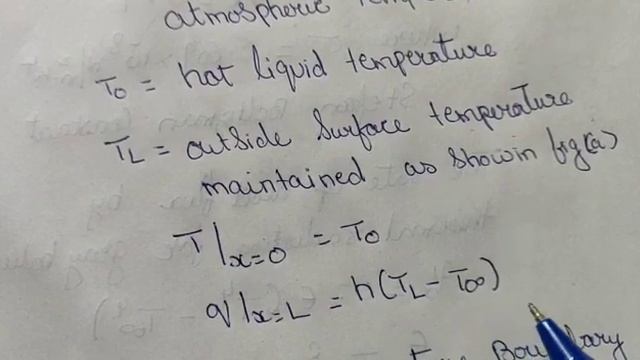 atmospheric
T₀ = hot liquid temperature
T_L = outside surface temperature
maintained as shown in fig(a)
T|ₓ₌₀ = T₀
q|ₓ₌L = h(T_L - T∞)
Boundary